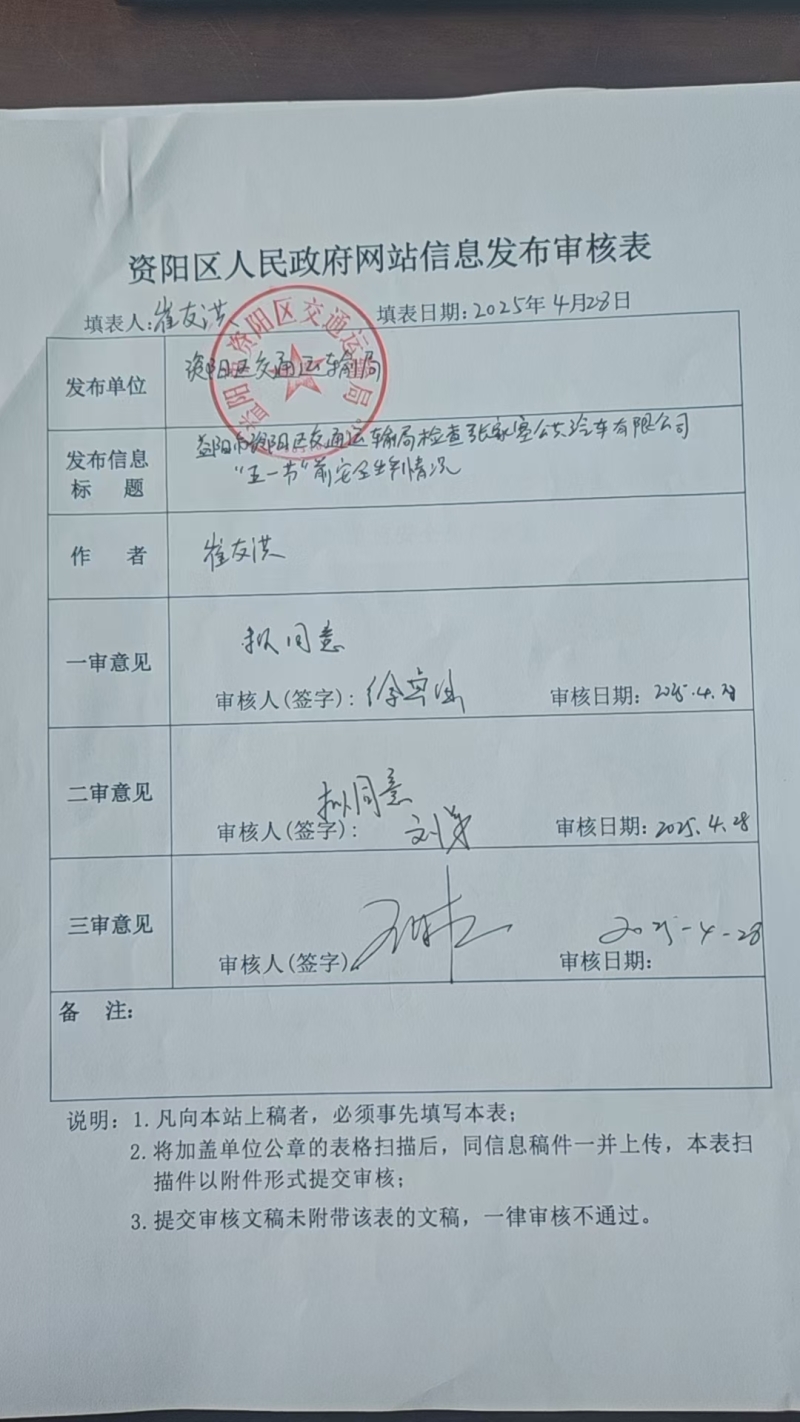 资阳区人民政府网站信息发布审核表
填表人:崔友洪 填表日期:2025年4月28日
益阳市资阳区交通运输局
发布单位 资阳区交通运输局
发布信息标 题 益阳市资阳区交通运输局检查张家塞公共汽车有限公司
"五一节"前安全生产情况
作 者 崔友洪
一审意见 拟同意
审核人(签字): 徐 审核日期: 2025.4.28
二审意见 拟同意
审核人(签字): 刘 审核日期: 2025.4.28
三审意见
审核人(签字) 审核日期: 2025-4-28
备 注:
说明: 1. 凡向本站上稿者，必须事先填写本表；
2. 将加盖单位公章的表格扫描后，同信息稿件一并上传，本表扫
描件以附件形式提交审核；
3. 提交审核文稿未附带该表的文稿，一律审核不通过。